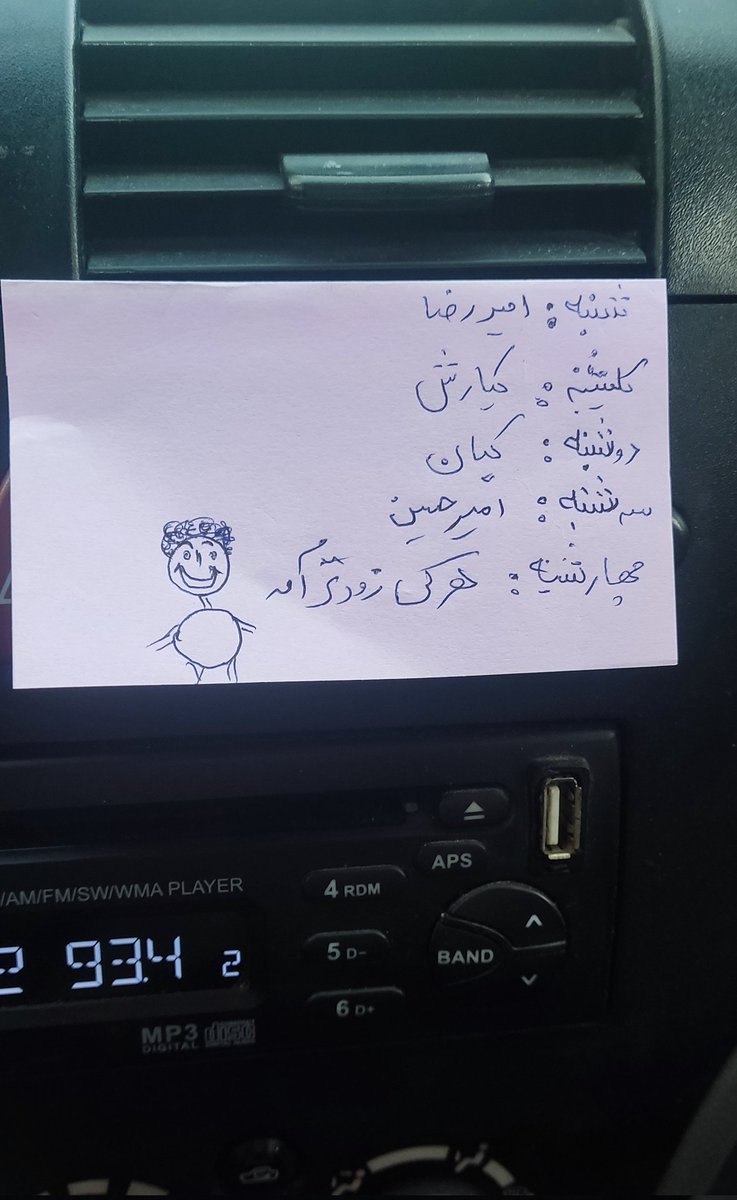 شنبه: امیررضا
یکشنبه: کیارش
دوشنبه: کیان
سه شنبه: امیرحسین
چهارشنبه: هرکی زودتر آمد
APS
/AM/FM/SW/WMA PLAYER
4 RDM
93.4 2
5 D-
BAND
6 D+
MP3 disc
DIGITAL